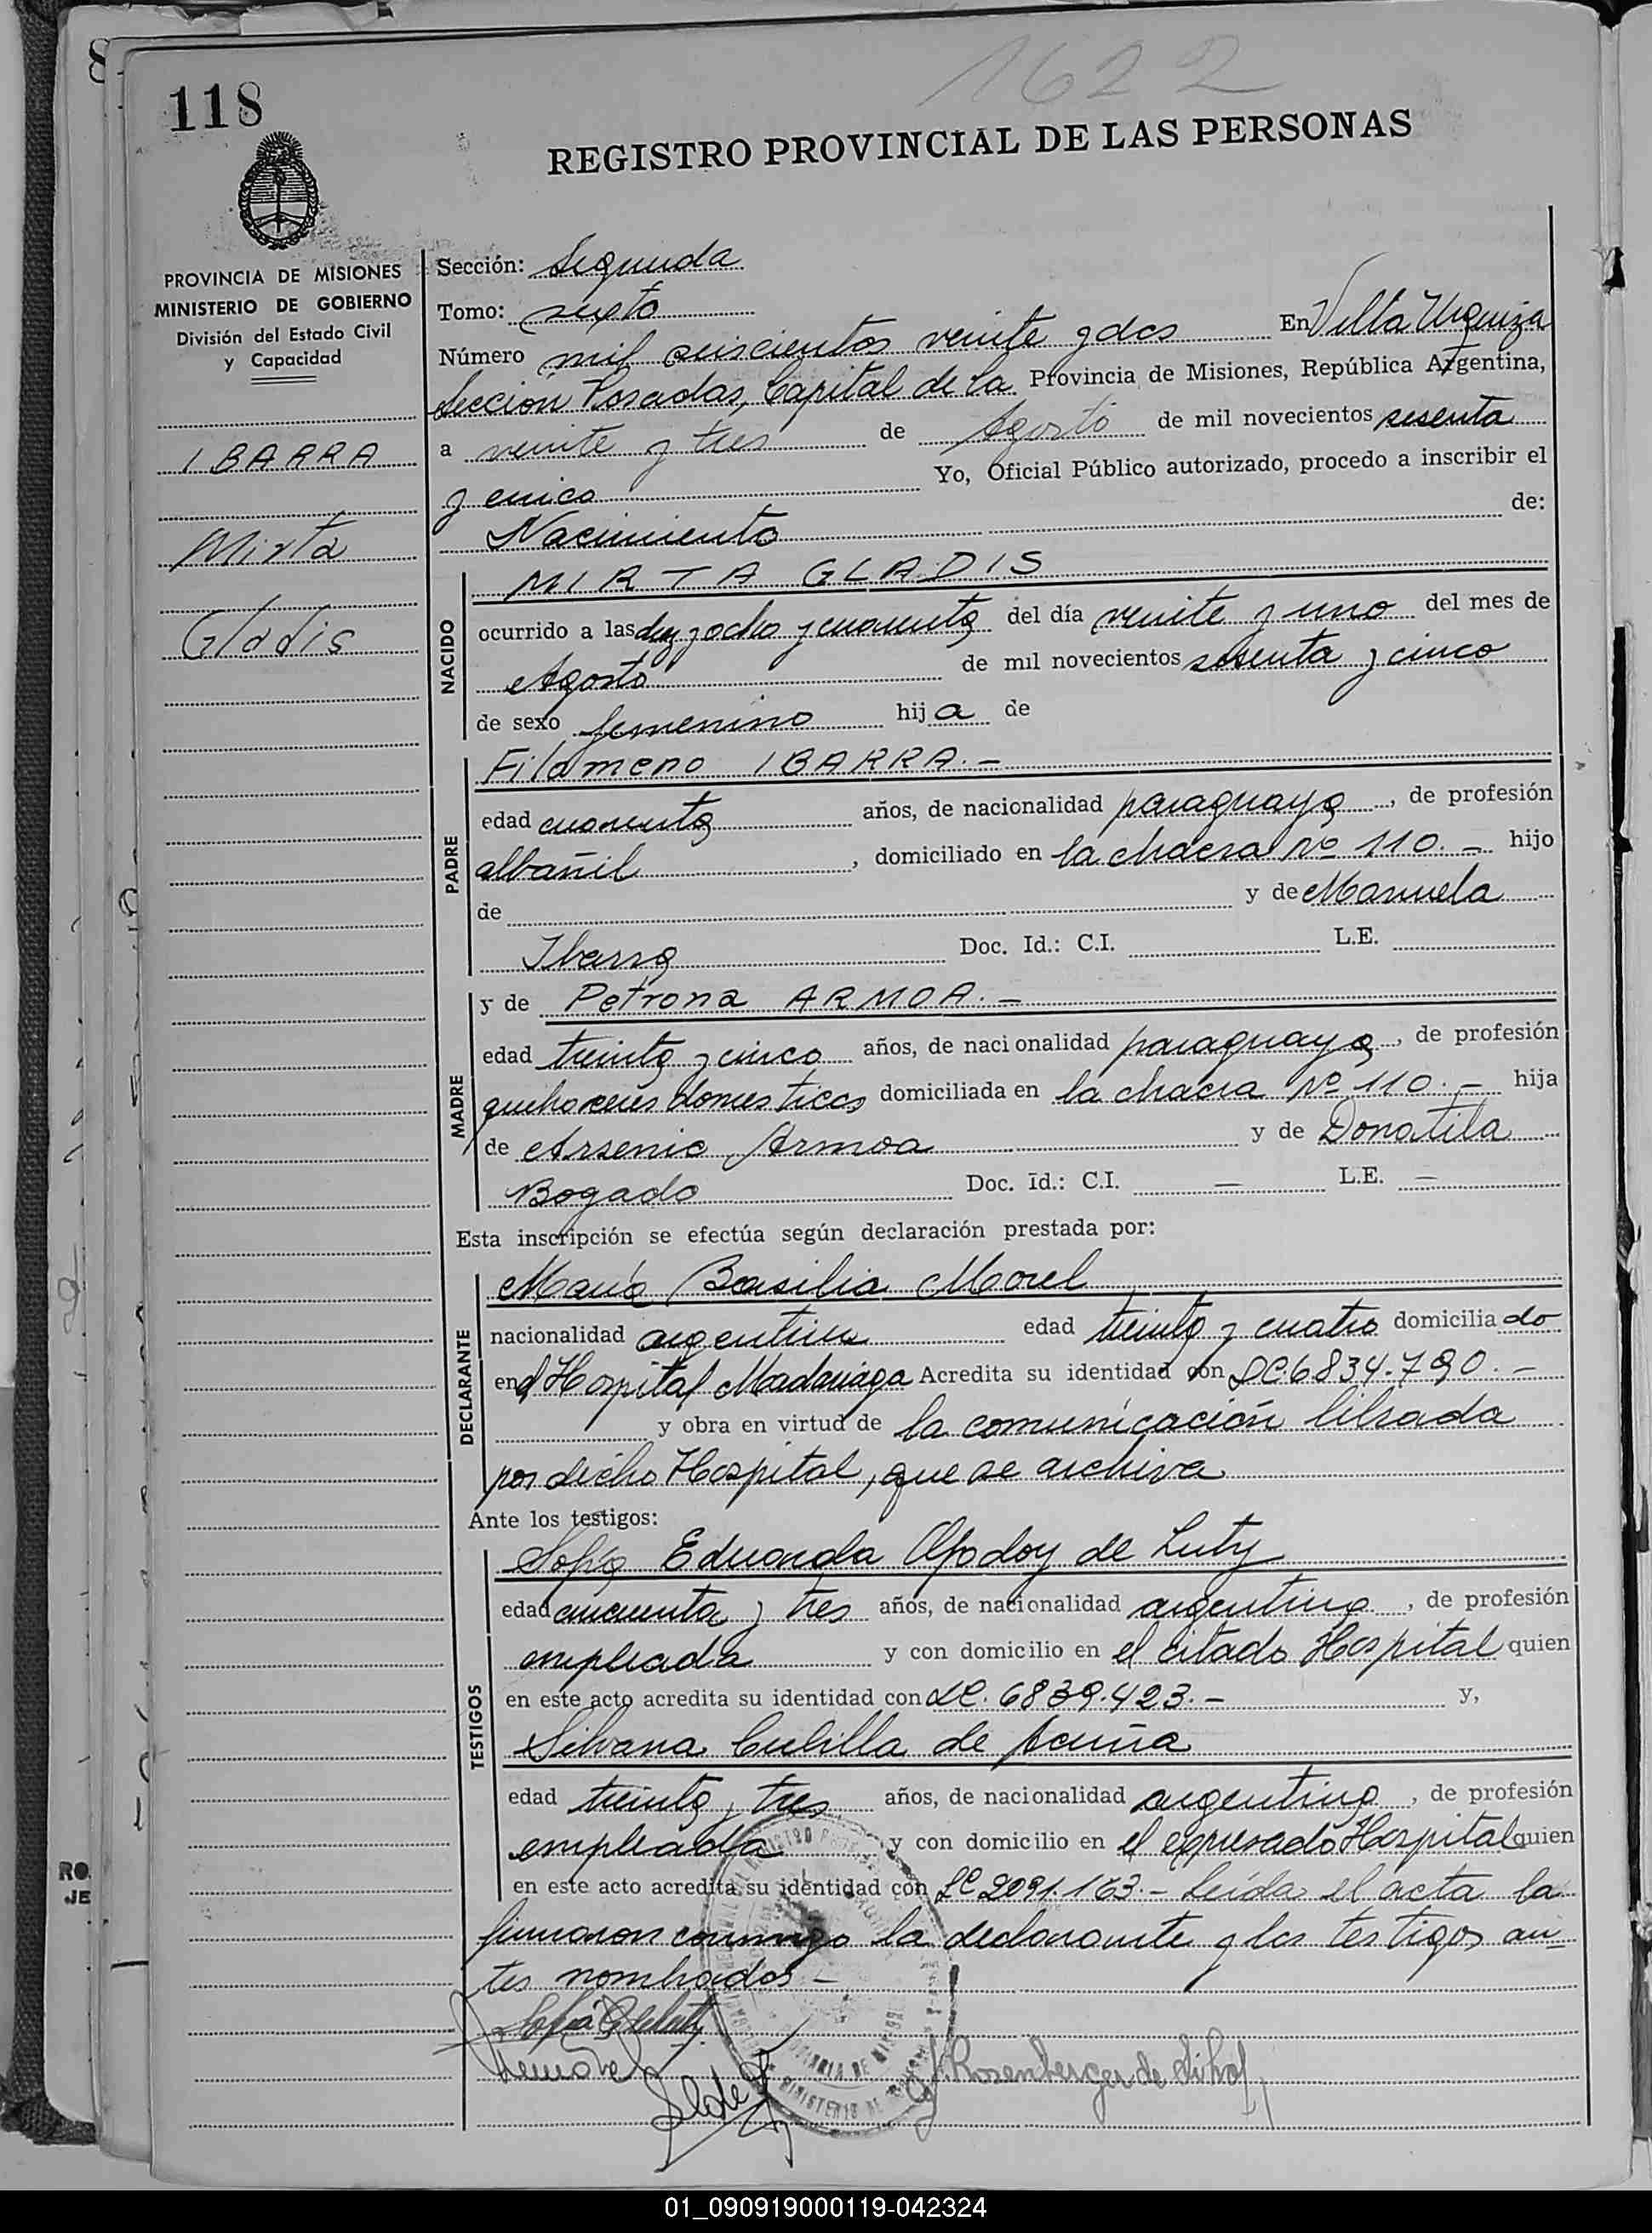 1622
118
REGISTRO PROVINCIAL DE LAS PERSONAS
PROVINCIA DE MISIONES
MINISTERIO DE GOBIERNO
División del Estado Civil
y Capacidad
IBARRA
Mirta
Gladis
Sección: Segunda
Tomo: sexto
Número mil seiscientos veinte y dos En Villa Urquiza
Sección Posadas, Capital de la Provincia de Misiones, República Argentina,
a veinte y tres de Agosto de mil novecientos sesenta
y cinco Yo, Oficial Público autorizado, procedo a inscribir el
Nacimiento de:
NACIDO
MIRTA GLADIS
ocurrido a las diez y ocho y cuarenta del día veinte y uno del mes de
Agosto de mil novecientos sesenta y cinco
de sexo femenino hija de
PADRE
Filomeno IBARRA.-
edad cuarenta años, de nacionalidad paraguaya, de profesión
albañil, domiciliado en la chacra Nº 110.- hijo
de y de Manuela
Ibarra Doc. Id.: C.I. L.E.
MADRE
y de Petrona ARMOA.-
edad treinta y cinco años, de nacionalidad paraguaya, de profesión
quehaceres domesticos domiciliada en la chacra Nº 110.- hija
de Arsenio Armoa y de Donatila
Bogado Doc. Id.: C.I. - L.E. -
Esta inscripción se efectúa según declaración prestada por:
DECLARANTE
María Basilia Morel
nacionalidad argentina edad treinta y cuatro domiciliado
en el Hospital Madariaga Acredita su identidad con 6834.790.-
y obra en virtud de la comunicación librada
por dicho Hospital, que se archiva
Ante los testigos:
TESTIGOS
Sofia Eduarda Godoy de Luty
edad cincuenta y tres años, de nacionalidad argentina, de profesión
empleada y con domicilio en el citado Hospital quien
en este acto acredita su identidad con LC. 6839.423.- y,
Silvana Cubilla de Acuña
edad treinta y tres años, de nacionalidad argentina, de profesión
empleada y con domicilio en el expresado Hospital quien
en este acto acredita su identidad con LC 2091.163.- Leída el acta la
firmaron conmigo la declarante y los testigos an-
tes nombrados-
Rosenberger de
RO.
JE
01_090919000119-042324